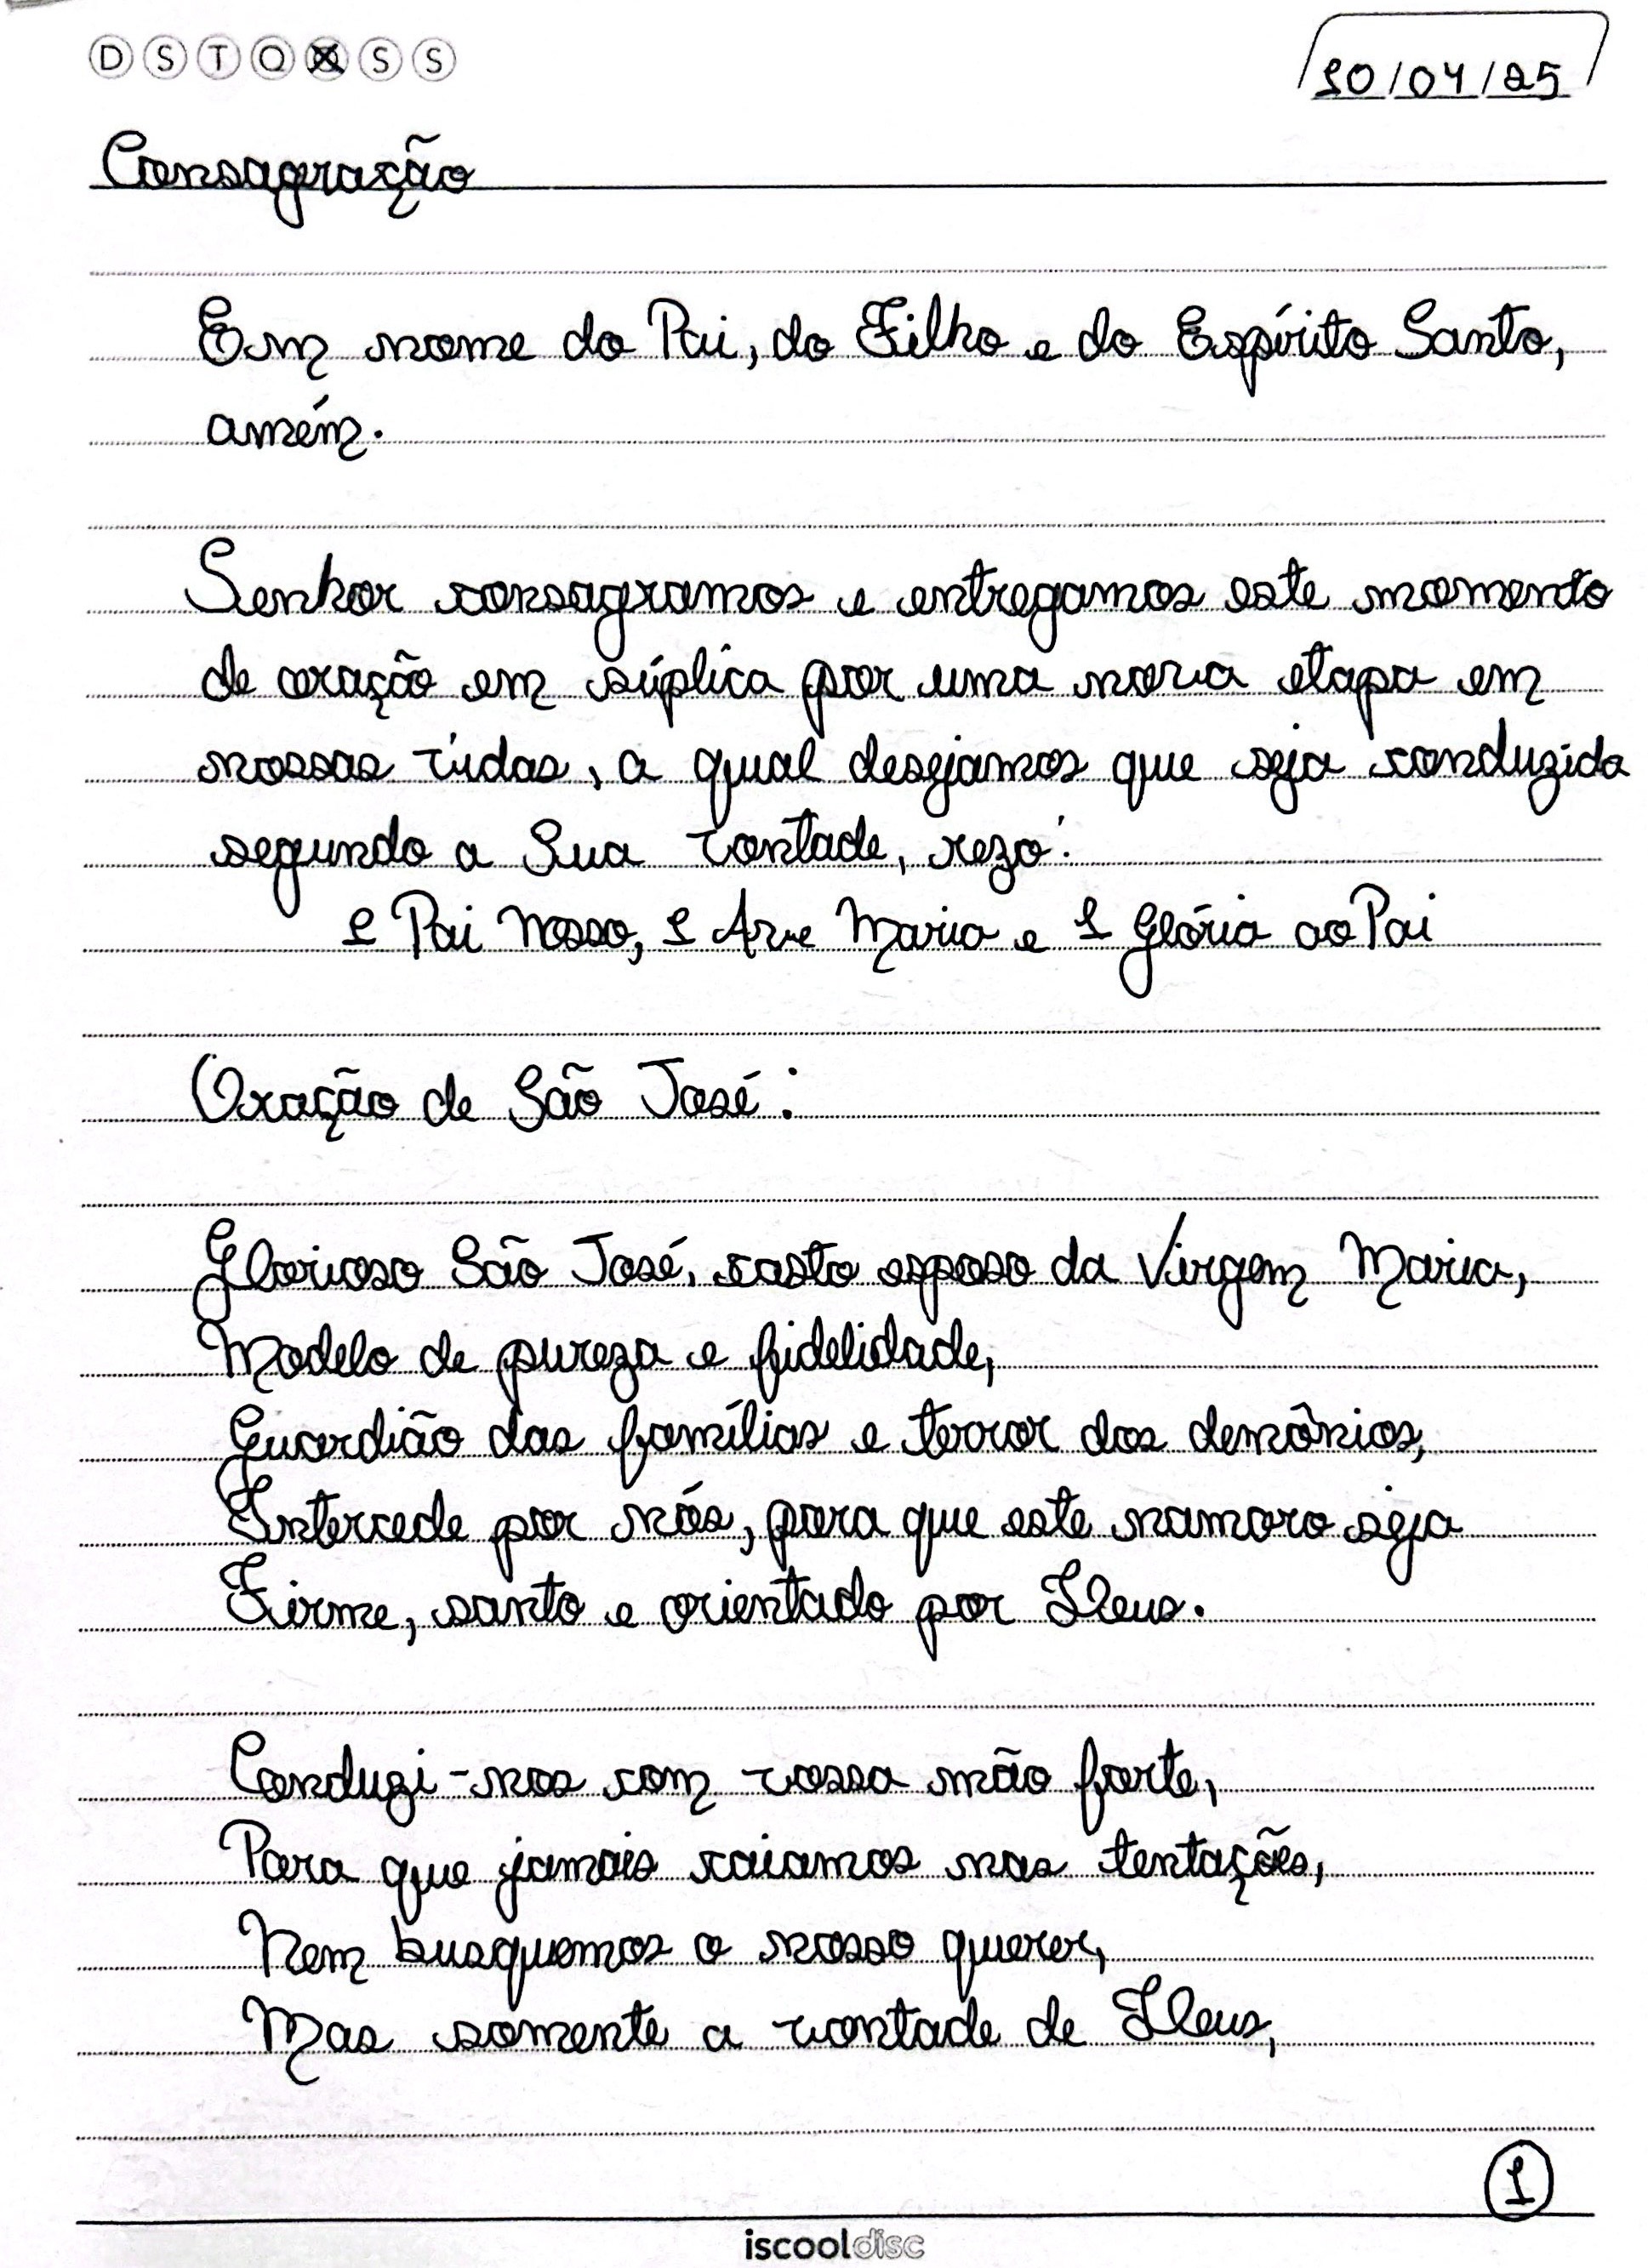 D S T Q Q S S
10/04/25
Consagração
Em nome do Pai, do Filho e do Espírito Santo,
amém.
Senhor consagramos e entregamos este momento
de oração em súplica por uma nova etapa em
nossas vidas, a qual desejamos que seja conduzida
segundo a Sua vontade, rezo:
1 Pai Nosso, 1 Ave Maria e 1 Glória ao Pai
Oração de São José:
Glorioso São José, casto esposo da Virgem Maria,
Modelo de pureza e fidelidade,
Guardião das famílias e terror dos demônios,
Intercede por nós, para que este namoro seja
Firme, santo e orientado por Deus.
Conduzi-nos com vossa mão forte,
Para que jamais caiamos nas tentações,
Nem busquemos o nosso querer,
Mas somente a vontade de Deus,
1
iscooldisc